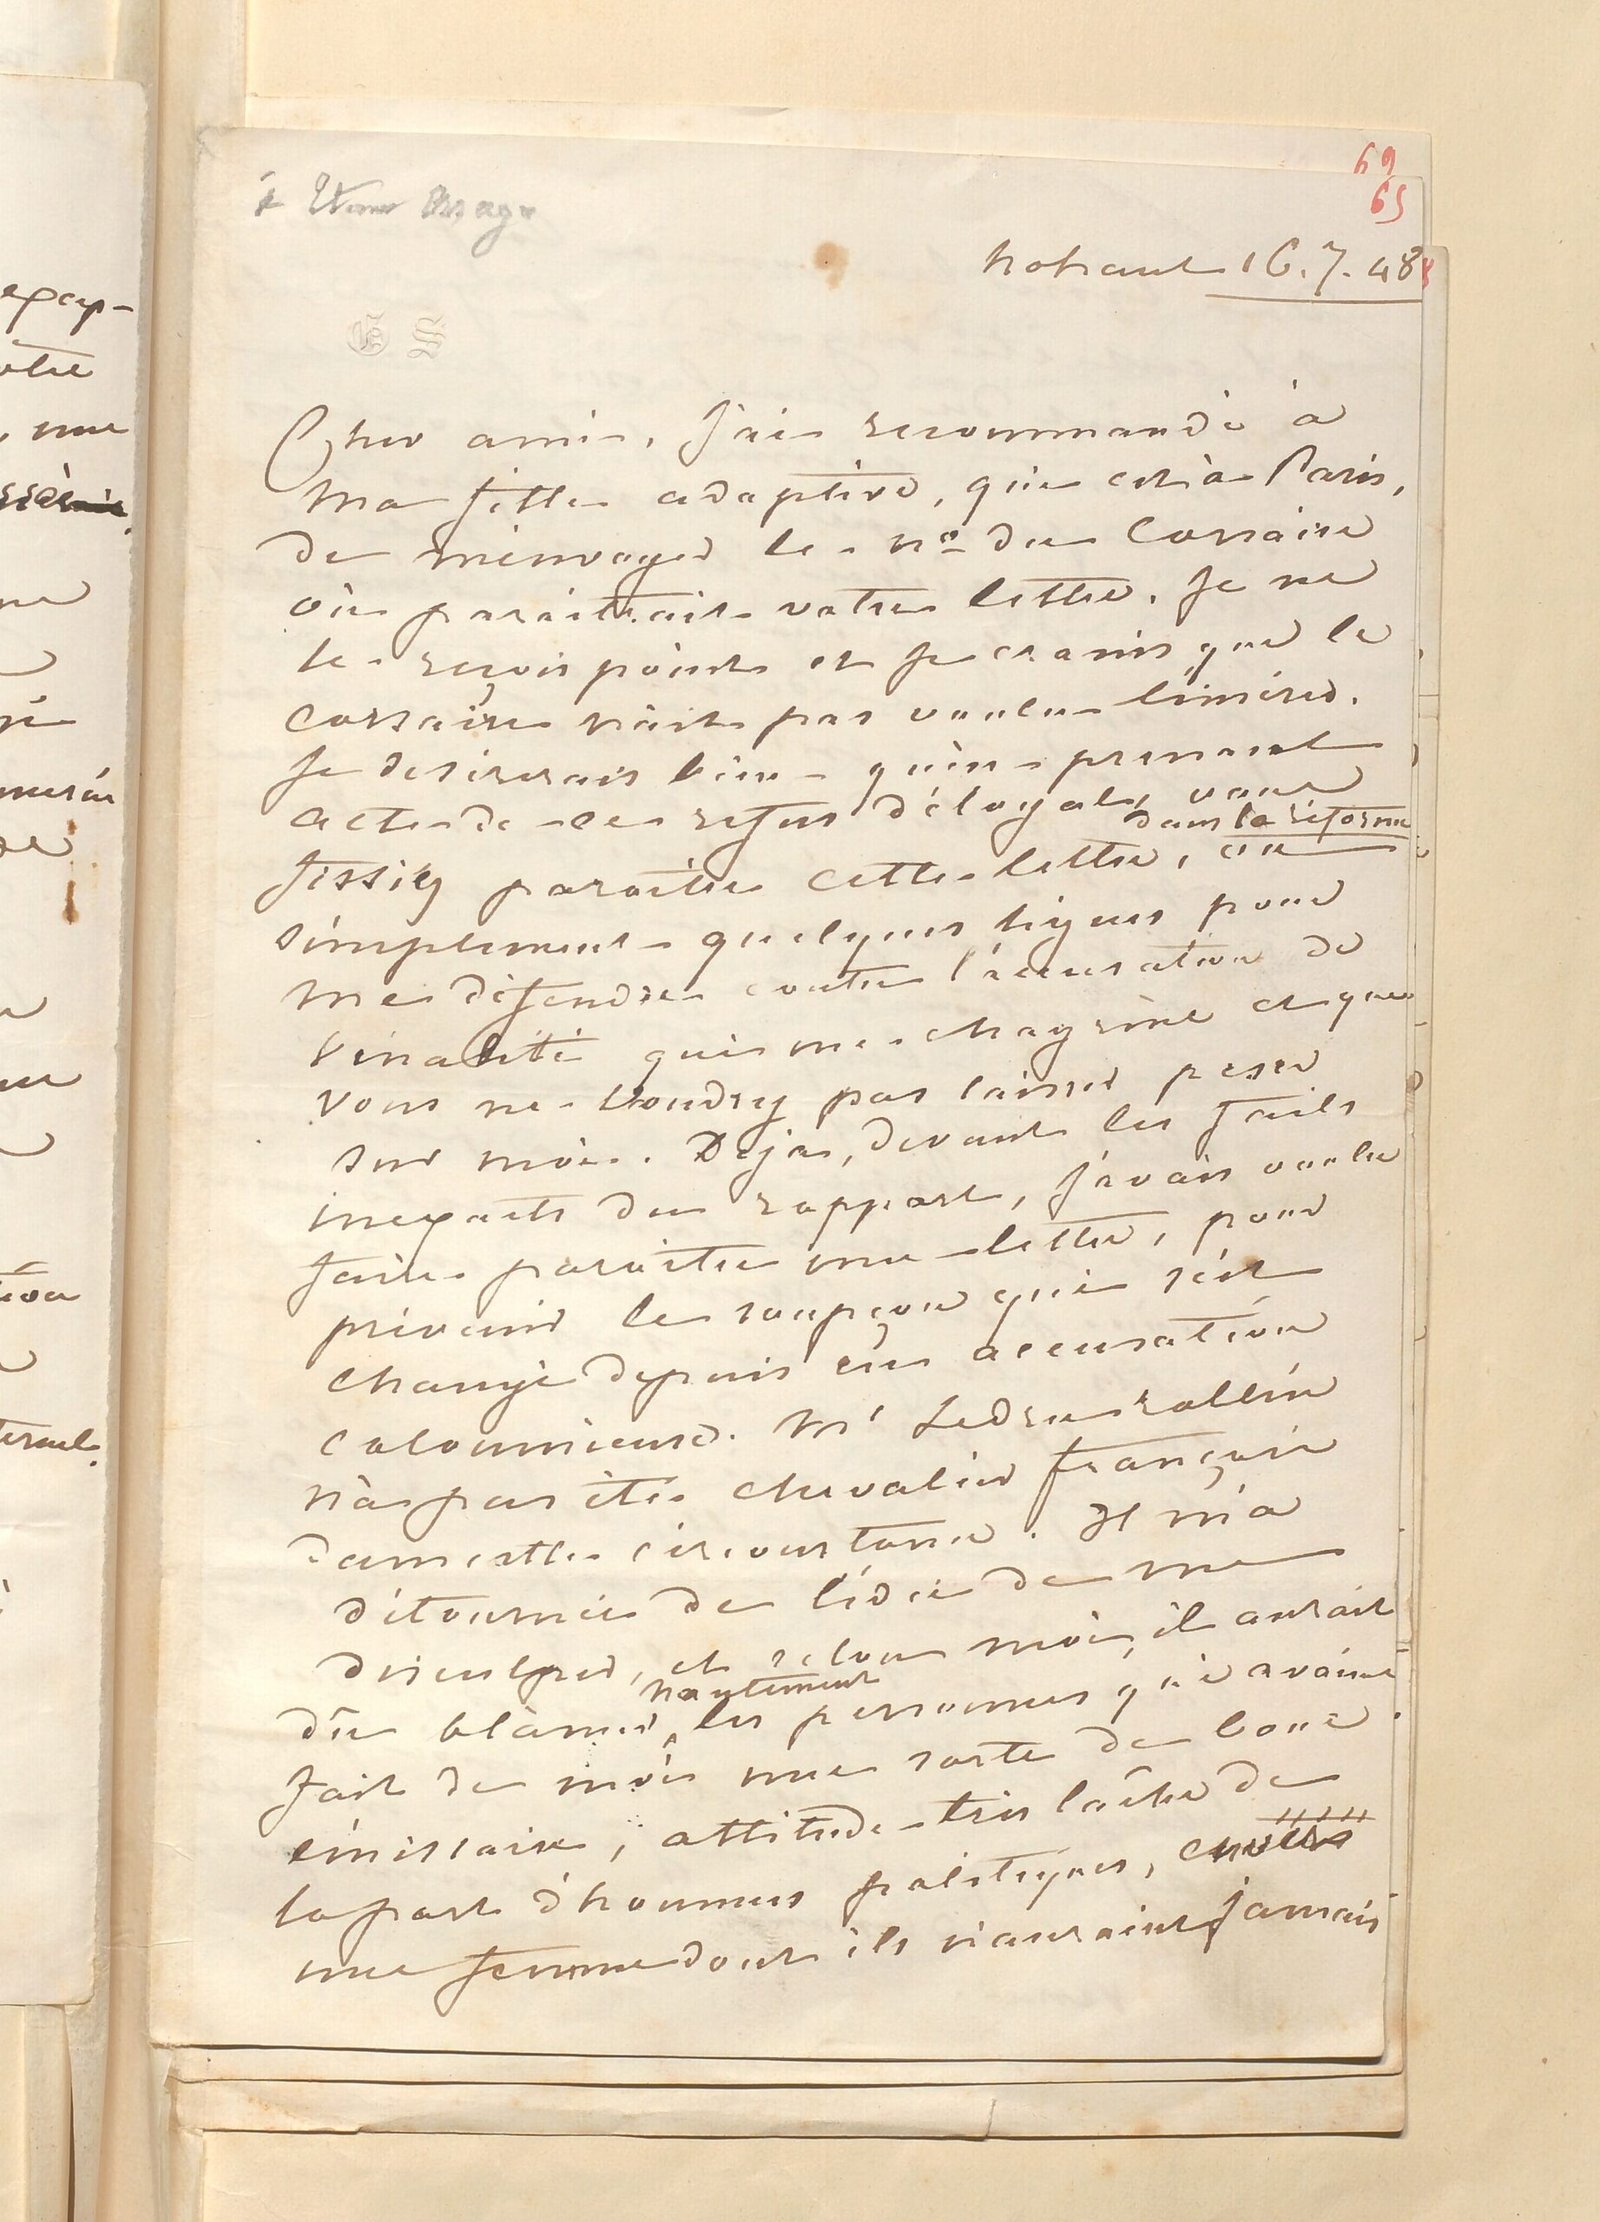 69
65
à Etienne Arago
nohant 16.7.48
G S
Cher ami, J'ai recommandé à
ma fille adoptive, qui est à Paris,
de m'envoyer le no du Corsaire
où paraitrait votre lettre. Je ne
le reçois point et je crains que le
corsaire n'ait pas voulu l'insérer.
Je desirerais bien qu'en prenant
acte de ce refus déloyal, vous
fissiez paraitre cette lettre, dans la réforme ou
simplement quelques lignes pour
me défendre contre l'accusation de
vénalité qui me chagrine et que
vous ne voudrez pas laisser peser
sur moi. Déja, devant les faits
inexacts du rapport, j'avais voulu
faire paraitre une lettre, pour
prévenir le soupçon qui s'est
changé depuis en accusation
calomnieuse. Mr Ledru rollin
n'a pas été chevalier français
dans cette circonstance. Il m'a
détournée de l'idée de me
disculper, et selon moi, il aurait
dû blâmer hautement les personnes qui avaient
fait de moi une sorte de bouc
émissaire, attitude très lâche de
la part d'hommes politiques, envers
une femme dont ils n'auraient jamais
excep-
une